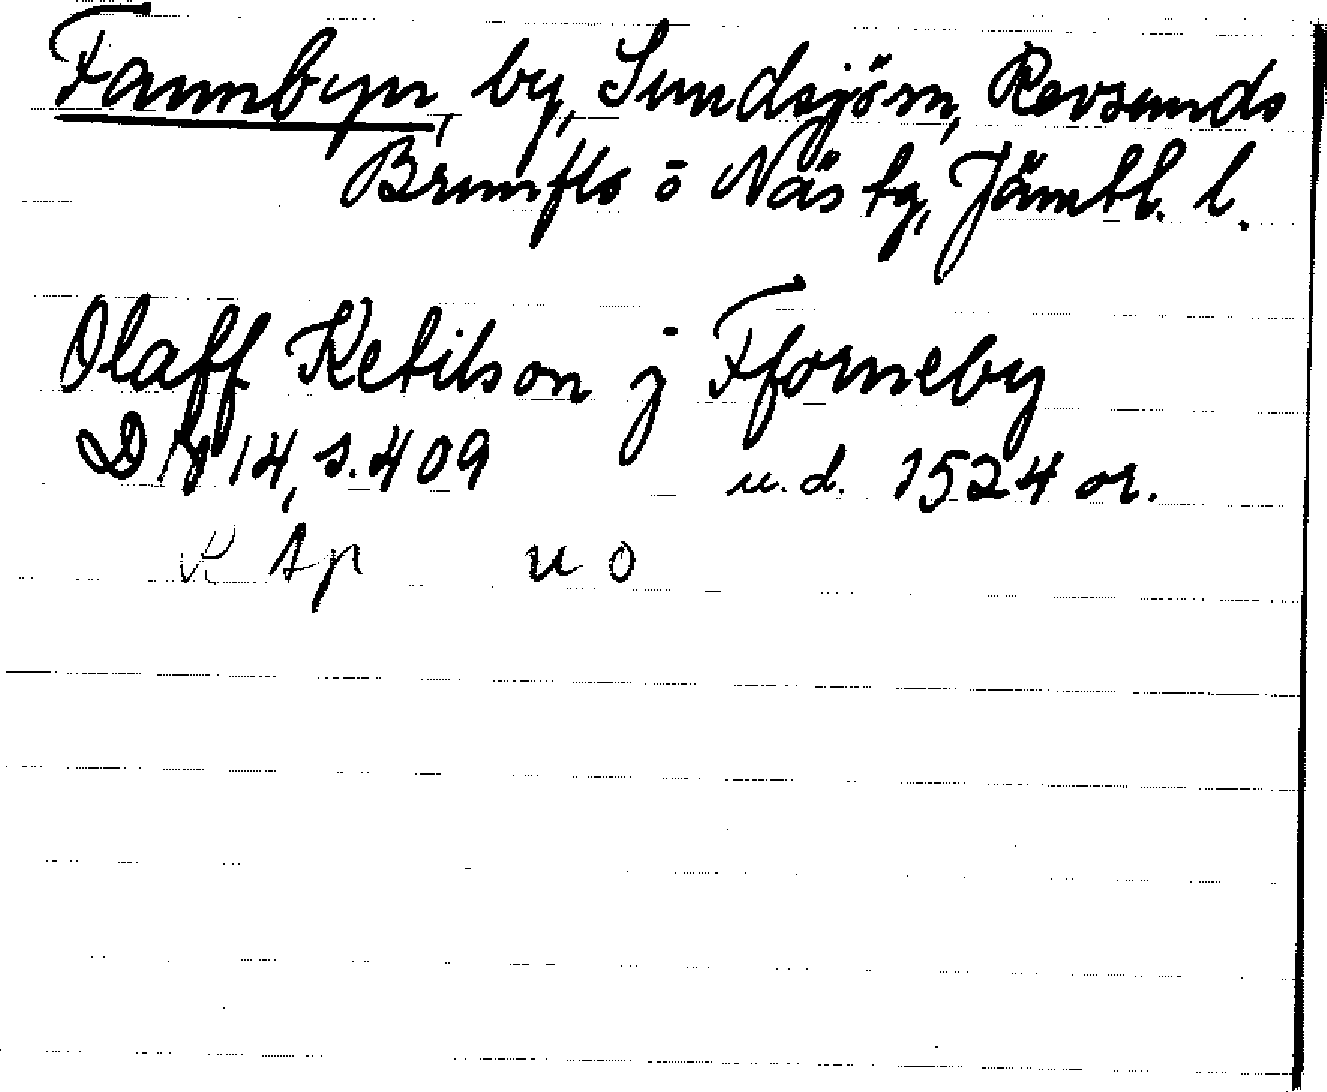 Fannbyn, by, Sundsjön, Revsunds
Brunflo o Näs tg, Jämtl. l.
Olaff Ketilson j Fforneby
DN 14, s. 409 u.d. 1524 or.
R Ap u o